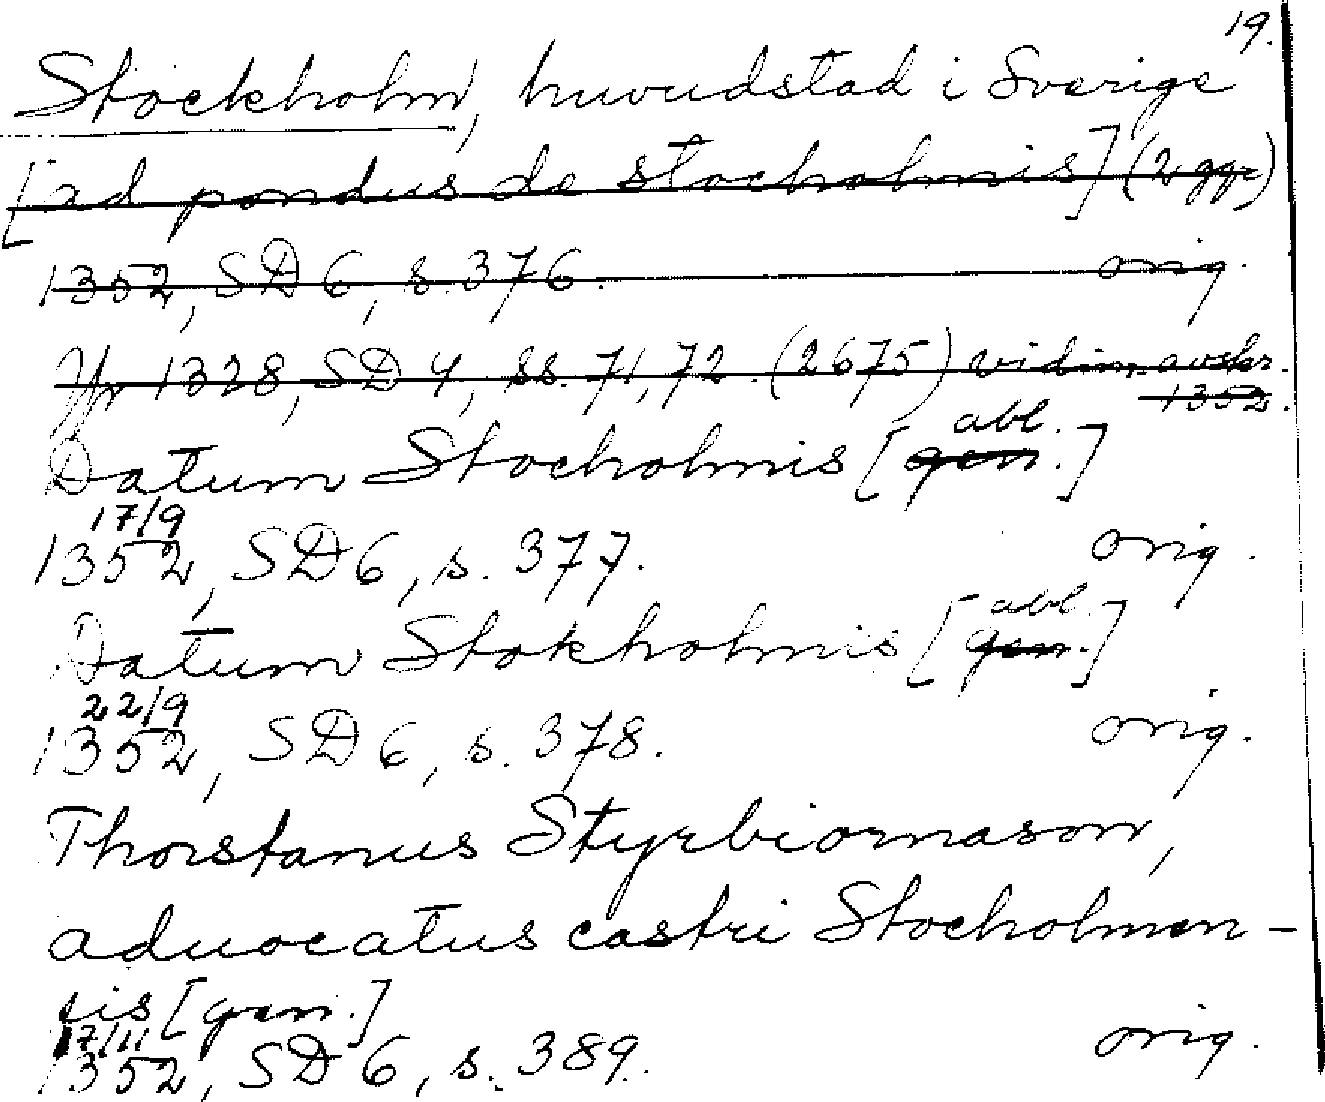 19.
Stockholm, huvudstad i Sverige
[ad pondus de stocholmis] (2 ggr)
1352, SD 6, s. 376. orig.
Jfr 1328, SD 4, ss. 71, 72. (2675) vidim. avskr.
1352.
abl.
Datum Stocholmis [gen.]
17/9
1352, SD 6, s. 377. orig.
abl.
Datum Stokholmis [gen.]
22/9
1352, SD 6, s. 378. orig.
Thorstanus Styrbiornason,
aduocatus castri Stocholmen-
sis [gen.]
17/11
1352, SD 6, s. 389. orig.